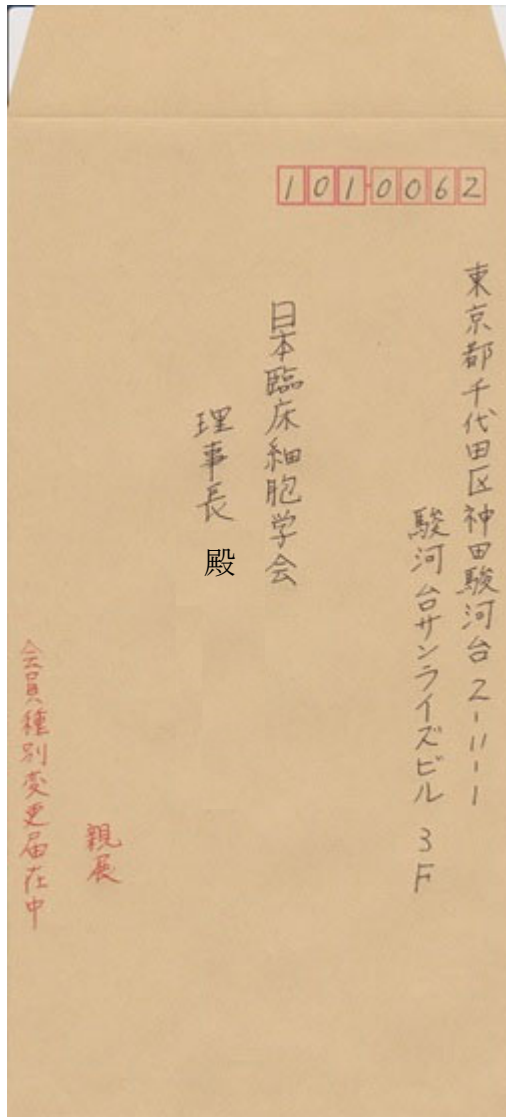 1010062
東京都千代田区神田駿河台2-11-1
駿河台サンライズビル 3F
日本臨床細胞学会
理事長 殿
親展
会員種別変更届在中